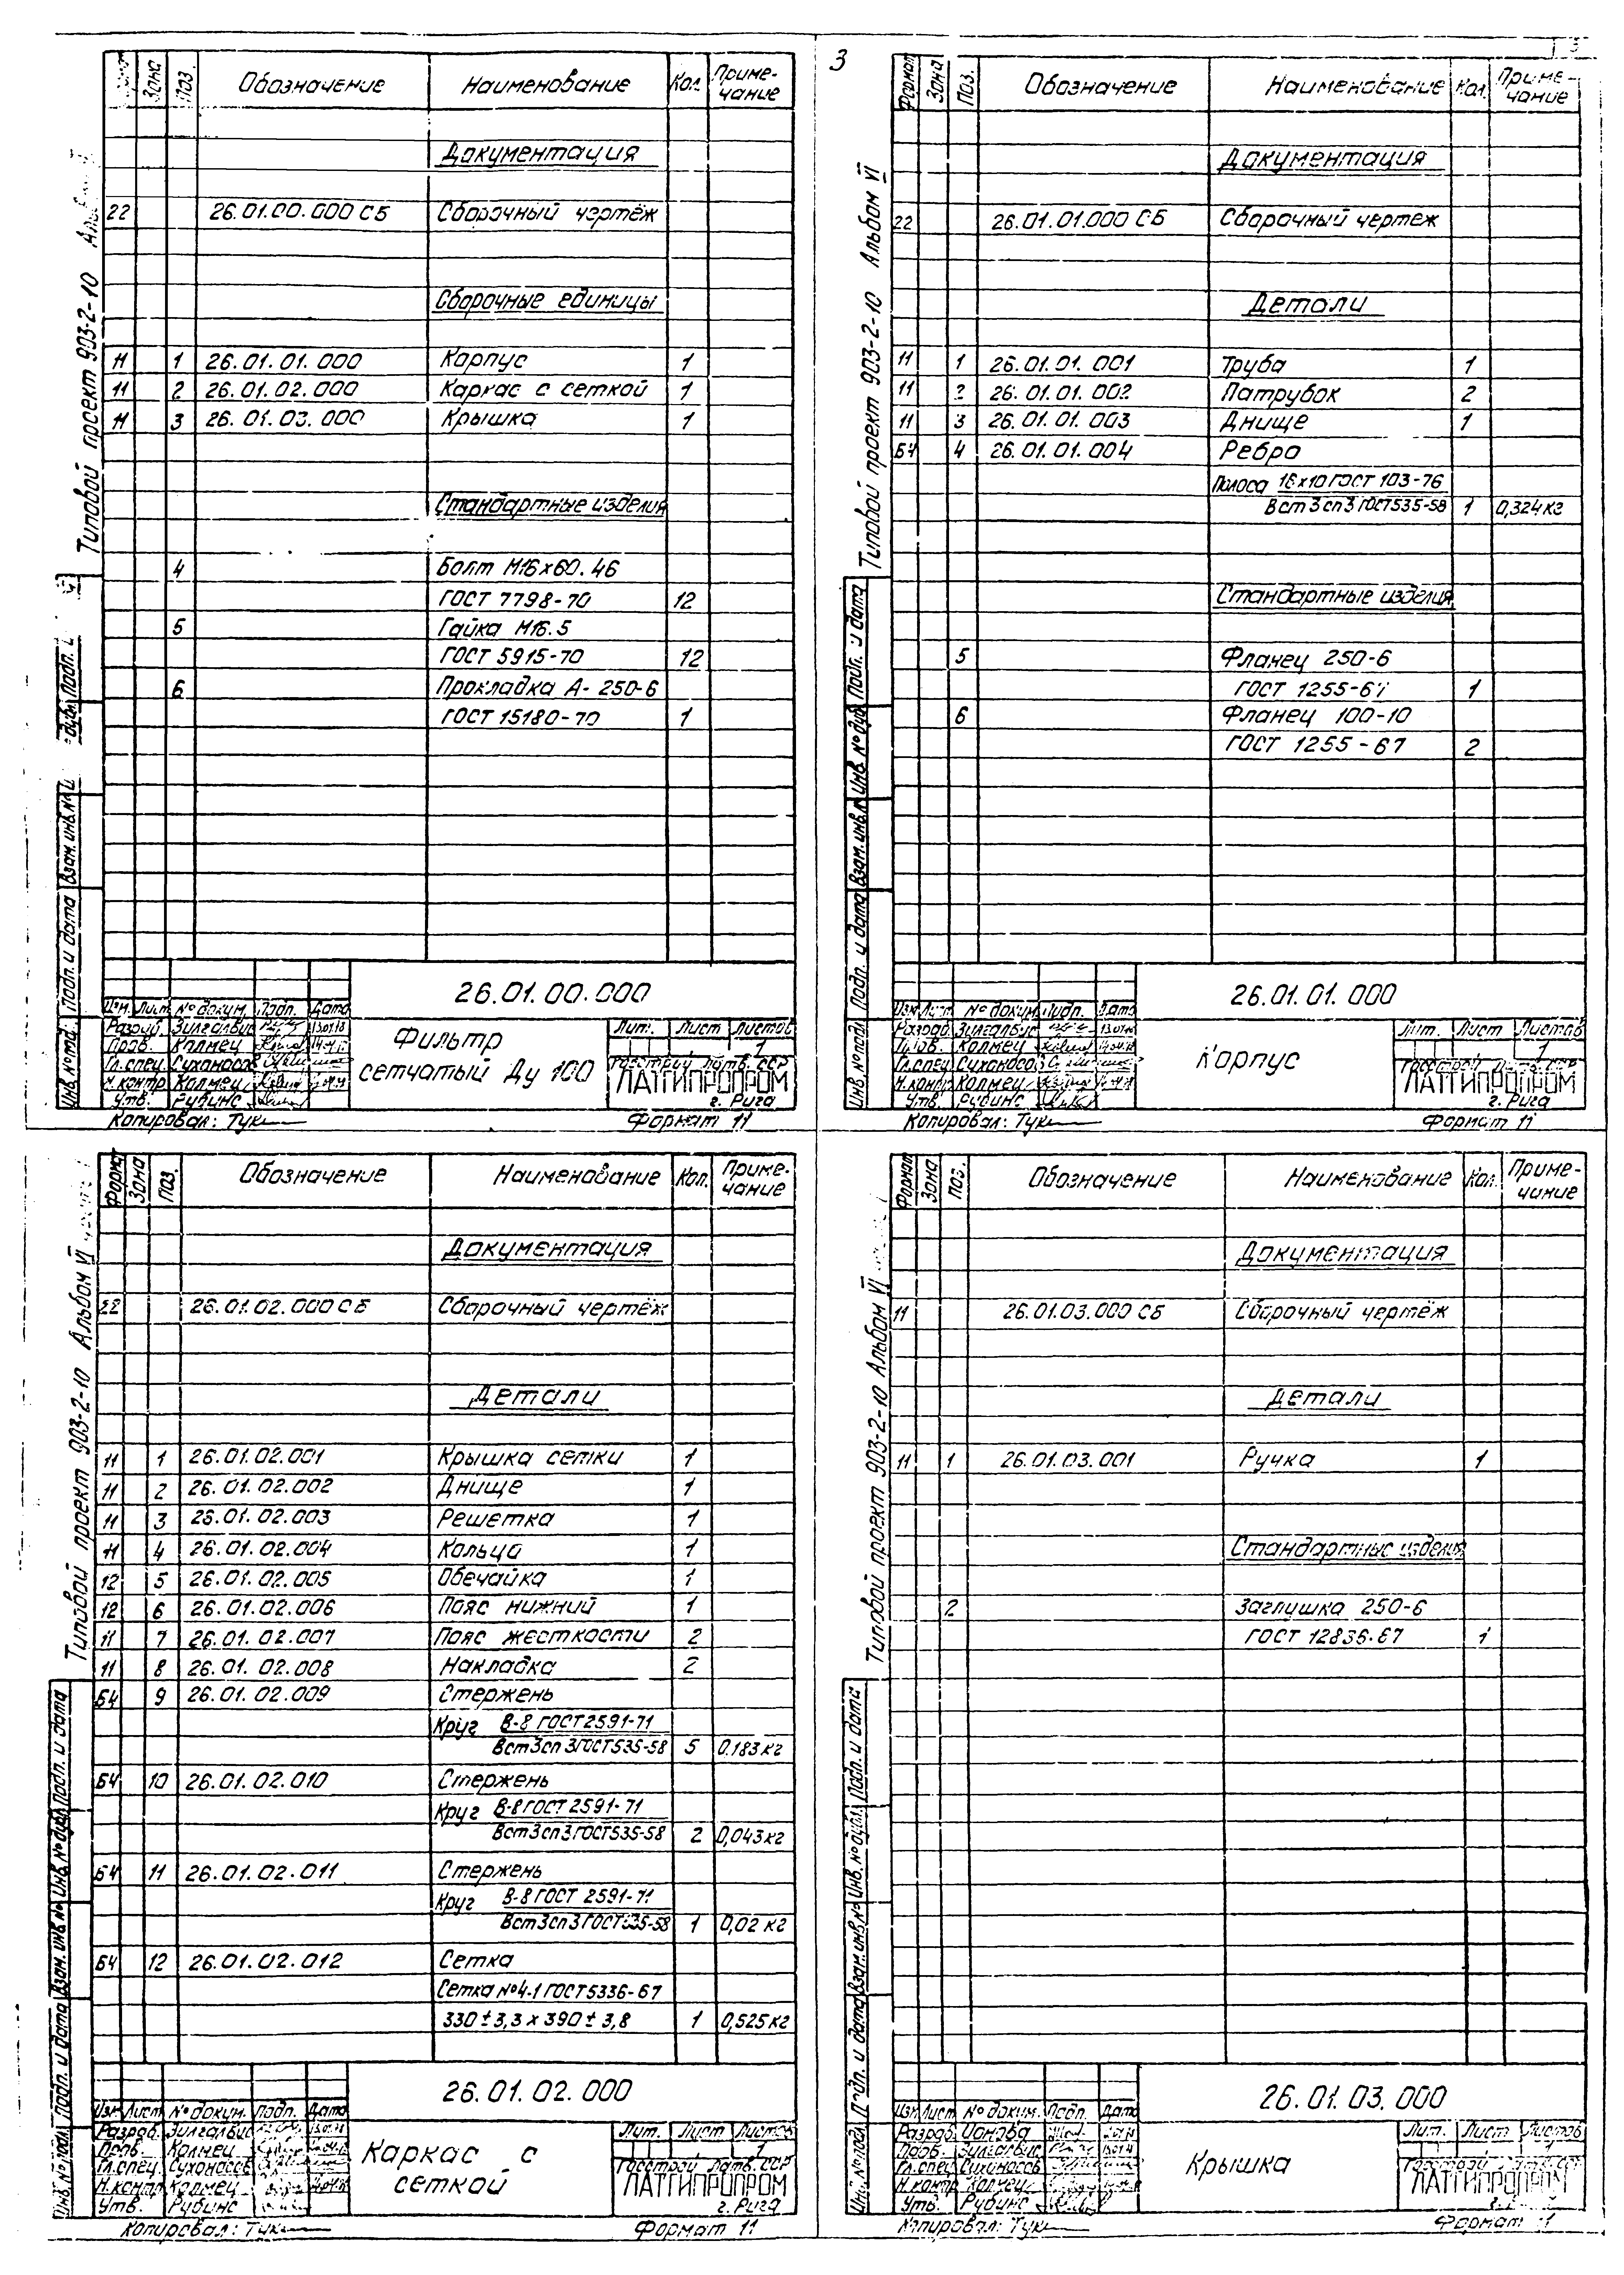 3
Зона Поз. Обозначение Наименование Кол. Приме-чание
Документация
22 26.01.00.000 СБ Сборочный чертёж
Сборочные единицы
11 1 26.01.01.000 Корпус 1
11 2 26.01.02.000 Каркас с сеткой 1
11 3 26.01.03.000 Крышка 1
Стандартные изделия
4 Болт М16х60.46
ГОСТ 7798-70 12
5 Гайка М16.5
ГОСТ 5915-70 12
6 Прокладка А-250-6
ГОСТ 15180-70 1
Типовой проект 903-2-10
Инв. № подл. Подп. и дата Взам. инв. №
26.01.00.000
Изм. Лист № докум. Подп. Дата
Разраб. Зилгалвис
Пров. Калмец
Гл. спец. Сухоносов
Н. контр. Калмец
Утв. Рубинс
Фильтр
сетчатый Ду 100
Лит. Лист Листов
1
Госстрой Латв. ССР
ЛАТГИПРОПРОМ
г. Рига
Копировал: Тук
Формат 11
Формат Зона Поз. Обозначение Наименование Кол. Приме-чание
Документация
22 26.01.01.000 СБ Сборочный чертеж
Детали
11 1 26.01.01.001 Труба 1
11 2 26.01.01.002 Патрубок 2
11 3 26.01.01.003 Днище 1
Б4 4 26.01.01.004 Ребро
Полоса 16х10 ГОСТ 103-76
Вст3сп3 ГОСТ535-58 1 0,324кг
Стандартные изделия
5 Фланец 250-6
ГОСТ 1255-67 1
6 Фланец 100-10
ГОСТ 1255-67 2
Типовой проект 903-2-10 Альбом VI
Инв. № подл. Подп. и дата Взам. инв. № Инв. № дубл. Подп. и дата
26.01.01.000
Изм Лист № докум. Подп. Дата
Разраб. Зилгалвис
Пров. Калмец
Гл. спец. Сухоносов
Н. контр. Калмец
Утв. Рубинс
Корпус
Лит. Лист Листов
1
Госстрой Латв. ССР
ЛАТГИПРОПРОМ
г. Рига
Копировал: Тук
Формат 11
Формат Зона Поз. Обозначение Наименование Кол. Приме-чание
Документация
22 26.01.02.000 СБ Сборочный чертёж
Детали
11 1 26.01.02.001 Крышка сетки 1
11 2 26.01.02.002 Днище 1
11 3 26.01.02.003 Решетка 1
11 4 26.01.02.004 Кольцо 1
12 5 26.01.02.005 Обечайка 1
12 6 26.01.02.006 Пояс нижний 1
11 7 26.01.02.007 Пояс жесткости 2
11 8 26.01.02.008 Накладка 2
Б4 9 26.01.02.009 Стержень
Круг В-8 ГОСТ2591-71
Вст3сп3ГОСТ535-58 5 0.183кг
Б4 10 26.01.02.010 Стержень
Круг В-8 ГОСТ 2591-71
Вст3сп3ГОСТ535-58 2 0,043кг
Б4 11 26.01.02.011 Стержень
Круг В-8 ГОСТ 2591-71
Вст3сп3ГОСТ535-58 1 0,02 кг
Б4 12 26.01.02.012 Сетка
Сетка №4-1 ГОСТ5336-67
330±3,3 х 390±3,8 1 0,525кг
Типовой проект 903-2-10 Альбом VI
Инв. № подл. Подп. и дата Взам. инв. № Инв. № дубл. Подп. и дата
26.01.02.000
Изм Лист № докум. Подп. Дата
Разраб. Зилгалвис
Пров. Калмец
Гл. спец. Сухоносов
Н. контр Калмец
Утв. Рубинс
Каркас с
сеткой
Лит. Лист Листов
1
Госстрой Латв. ССР
ЛАТГИПРОПРОМ
г. Рига
Копировал: Тук
Формат 11
Формат Зона Поз. Обозначение Наименование Кол. Приме-чание
Документация
11 26.01.03.000 СБ Сборочный чертёж
Детали
11 1 26.01.03.001 Ручка 1
Стандартные изделия
2 Заглушка 250-6
ГОСТ 12836-67 1
Типовой проект 903-2-10 Альбом VI
Инв. № подл. Подп. и дата Взам. инв. № Инв. № дубл. Подп. и дата
26.01.03.000
Изм Лист № докум. Подп. Дата
Разраб. Ионова
Пров. Зилгалвис
Гл. спец Сухоносов
Н. контр Калмец
Утв. Рубинс
Крышка
Лит. Лист Листов
1
Госстрой Латв. ССР
ЛАТГИПРОПРОМ
Копировал: Тук
Формат 11